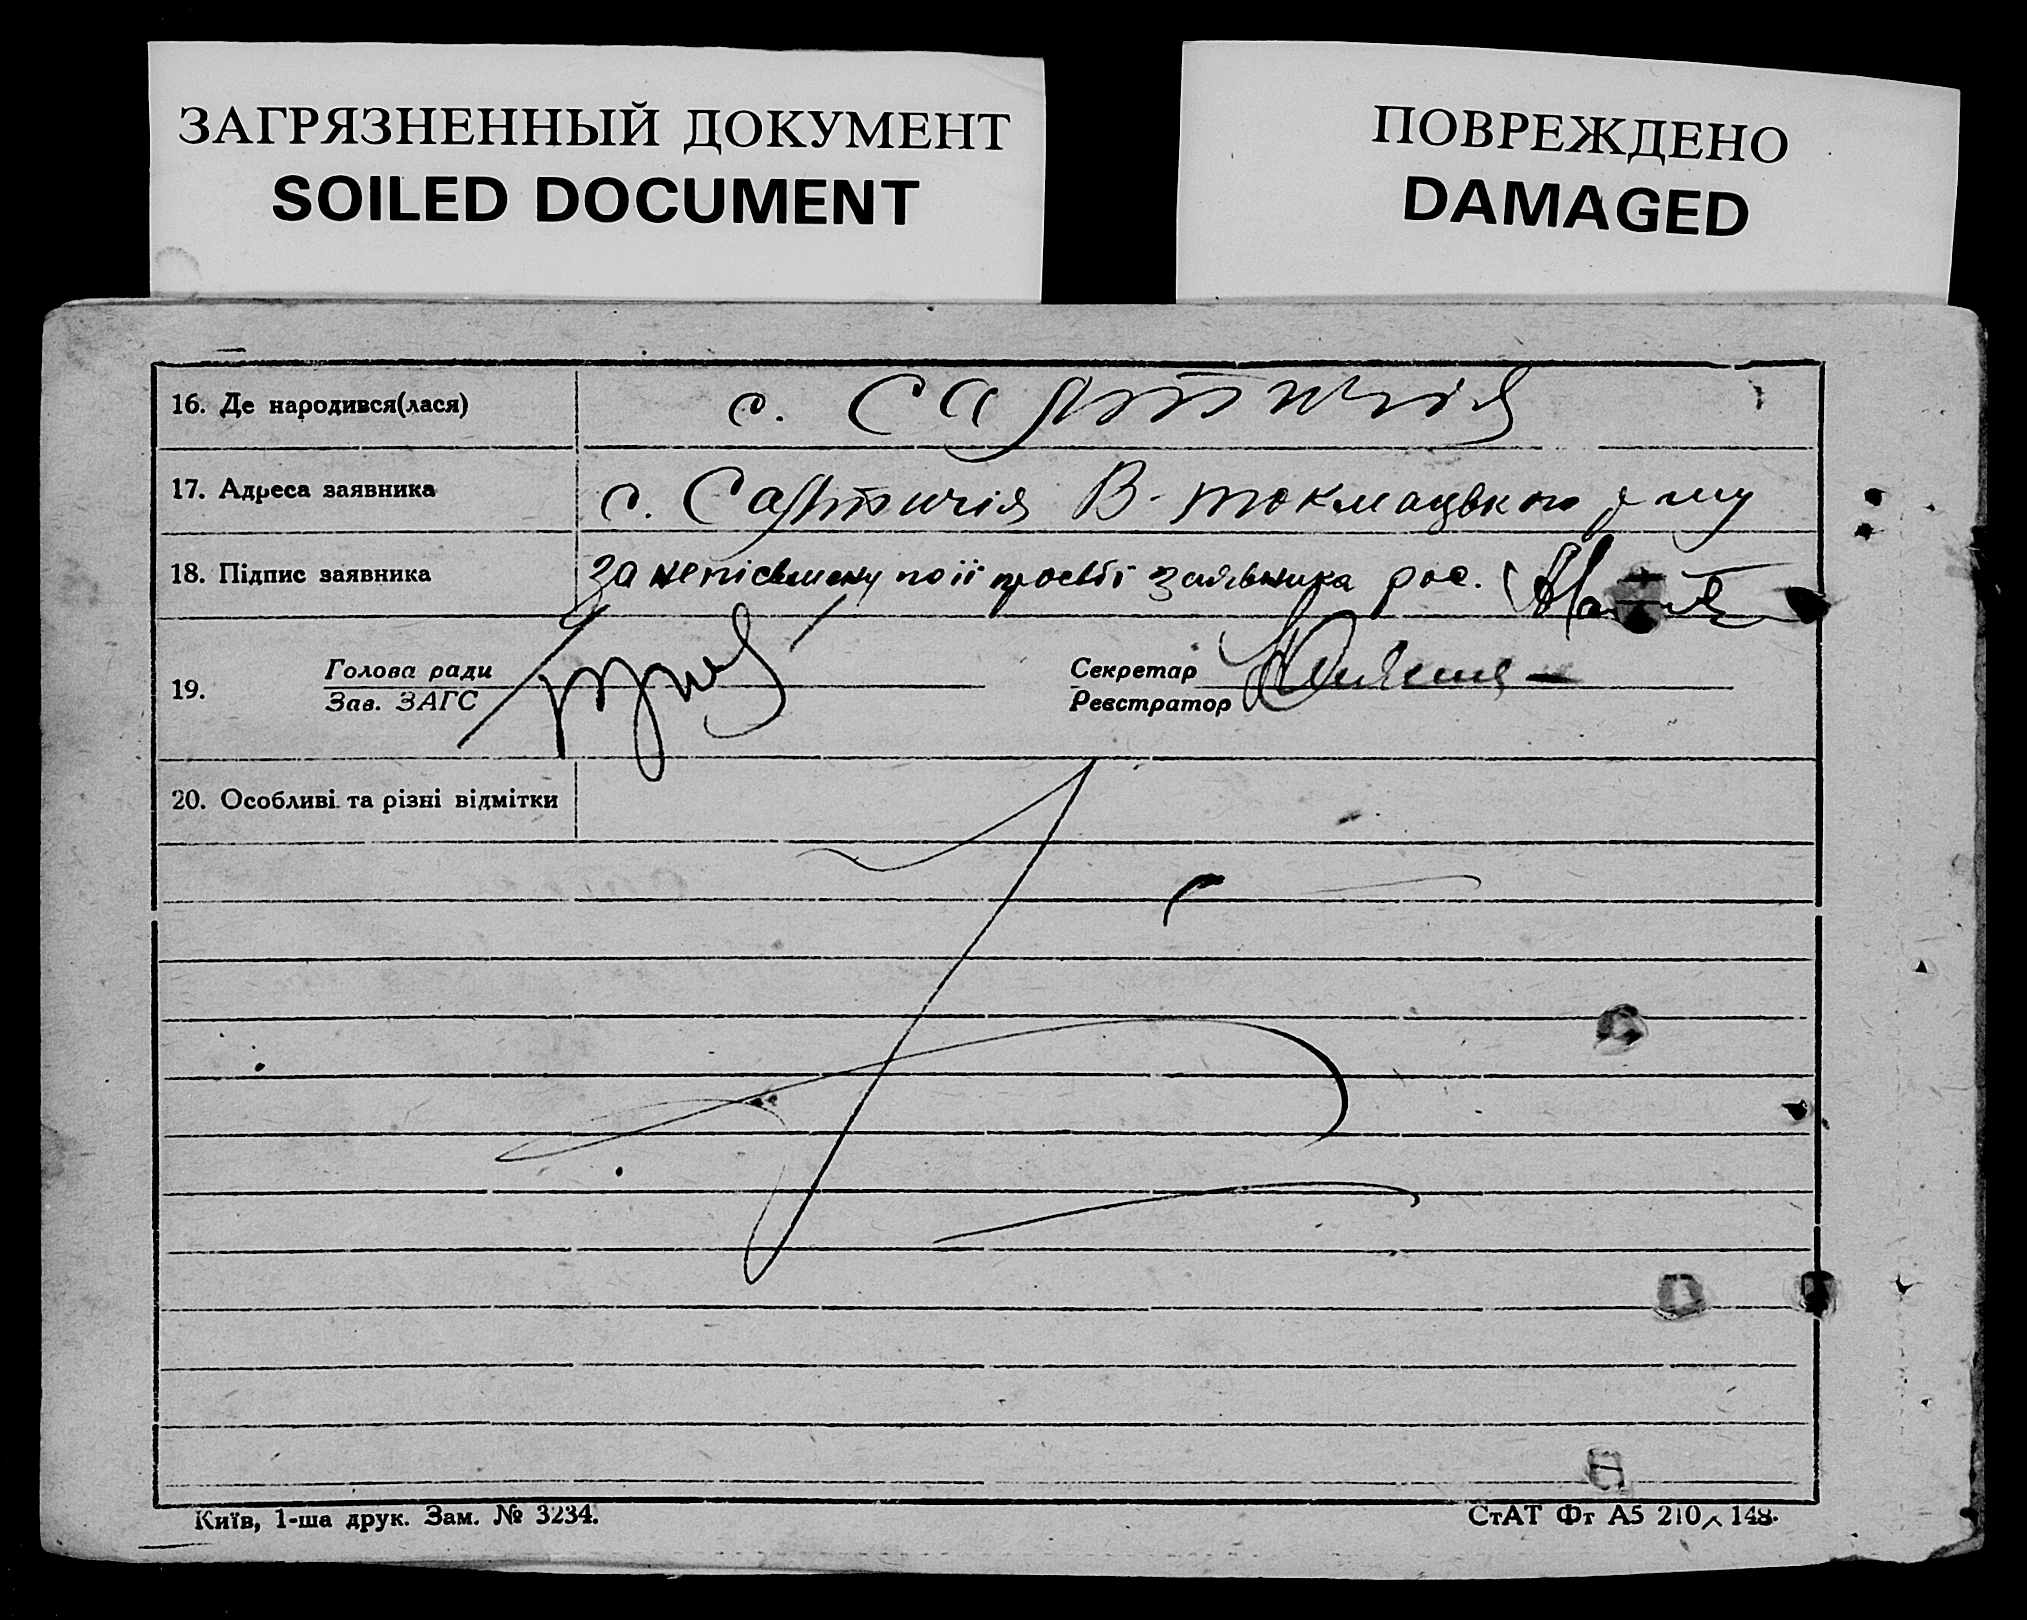 ЗАГРЯЗНЕННЫЙ ДОКУМЕНТ
SOILED DOCUMENT
ПОВРЕЖДЕНО
DAMAGED
16. Де народився(лася) с.
17. Адреса заявника с. В-токмацького р-ну
18. Підпис заявника За неписьмену по її просьбі заявника рос.
19. Голова ради Секретар
Зав. ЗАГС Реєстратор
20. Особливі та різні відмітки
Київ, 1-ша друк. Зам. № 3234.
СтАТ Фт А5 210 × 148.